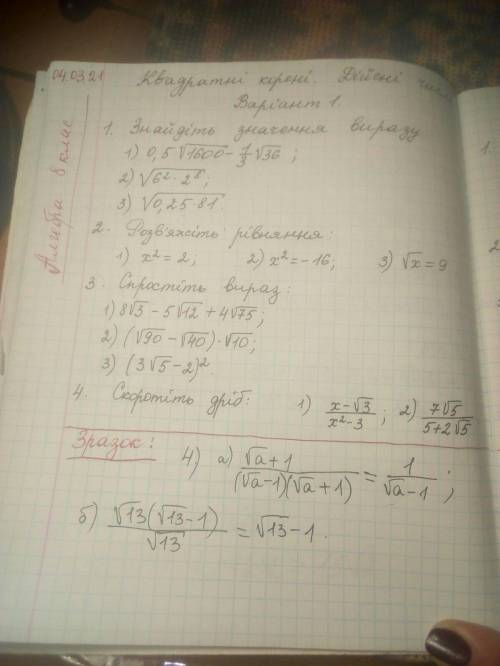 04.03.21
Квадратні корені. Дійсні чис
Варіант 1.
Алгебра 8 клас
1. Знайдіть значення виразу
1) 0,5√1600 - 1/3 √36 ;
2) √(6² · 2⁸);
3) √(0,25 · 81).
2. Розв'яжіть рівняння:
1) x² = 2; 2) x² = -16; 3) √x = 9
3. Спростіть вираз:
1) 8√3 - 5√12 + 4√75;
2) (√90 - √40) · √10;
3) (3√5 - 2)².
4. Скоротіть дріб: 1) (x-√3)/(x²-3) ; 2) 7√5/(5+2√5)
Зразок:
4) а) (√a+1)/((√a-1)(√a+1)) = 1/(√a-1) ;
б) √13(√13-1)/√13 = √13-1.
1.
2